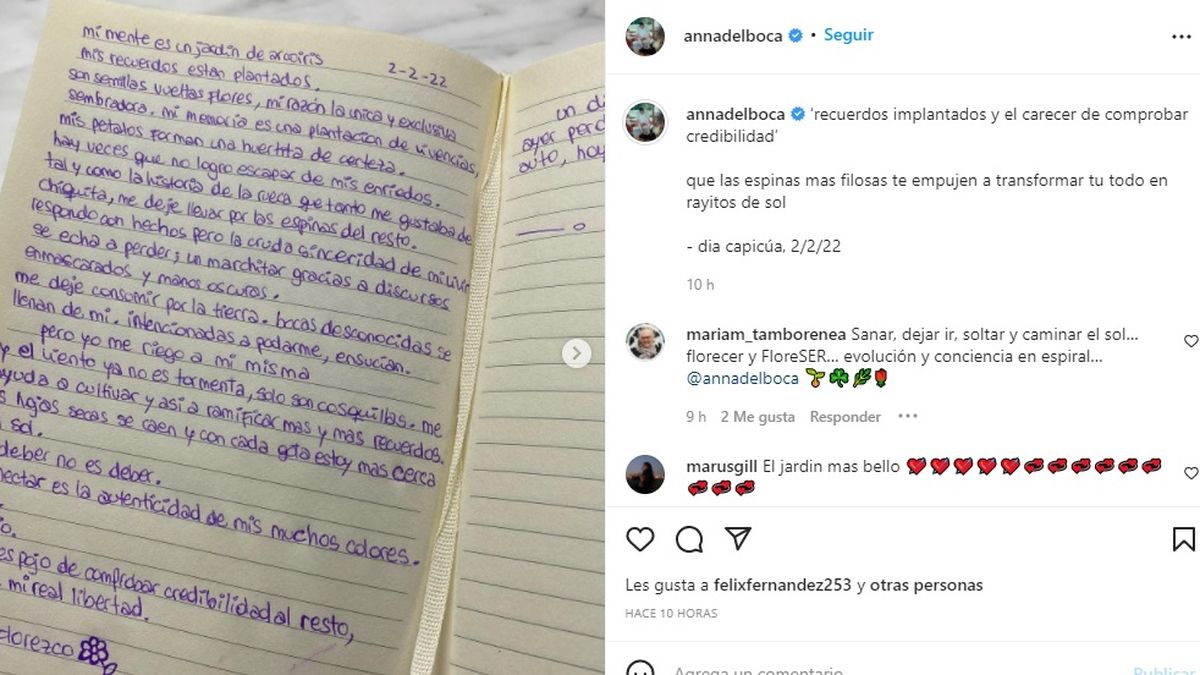 mi mente es un jardin de arcoiris
2-2-22
mis recuerdos estan plantados.
son semillas vueltas flores, mi razón la unica y exclusiva
sembradora. mi memoria es una plantacion de vivencias,
mis petalos forman una huertita de certeza.
hay veces que no logro escapar de mis enriedos.
tal y como la historia de la rueca que tanto me gustaba de
chiquita, me deje llevar por las espinas del resto.
respondo con hechos pero la cruda sinceridad de mi vivir
se echa a perder; un marchitar gracias a discursos
enmascarados y manos oscuras.
me deje consumir por la tierra. bocas desconocidas se
llenan de mi. intencionadas a podarme, ensucian.
pero yo me riego a mi misma
y el viento ya no es tormenta, solo son cosquillas. me
ayuda a cultivar y asi a ramificar mas y mas recuerdos.
s hojas secas se caen y con cada gota estoy mas cerca
sol.
deber no es deber.
nectar es la autenticidad de mis muchos colores.
o.
espojo de comprobar credibilidad al resto,
mi real libertad.
florezco
un di
ayer perd
auto, hoy
annadelboca • Seguir
annadelboca 'recuerdos implantados y el carecer de comprobar
credibilidad'
que las espinas mas filosas te empujen a transformar tu todo en
rayitos de sol
- dia capicúa, 2/2/22
10 h
mariam_tamborenea Sanar, dejar ir, soltar y caminar el sol...
florecer y FloreSER... evolución y conciencia en espiral...
@annadelboca
9 h 2 Me gusta Responder
marusgill El jardin mas bello
Les gusta a felixfernandez253 y otras personas
HACE 10 HORAS
Agrega un comentario
Publicar